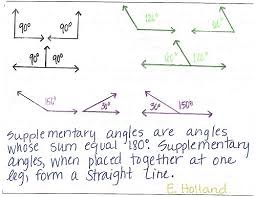 90° 90°
120° 60°
90° 90°
60° 120°
150° 30° 30° 150°
Supplementary angles are angles
whose sum equal 180°. Supplementary
angles, when placed together at one
leg, form a Straight Line.
E. Holland